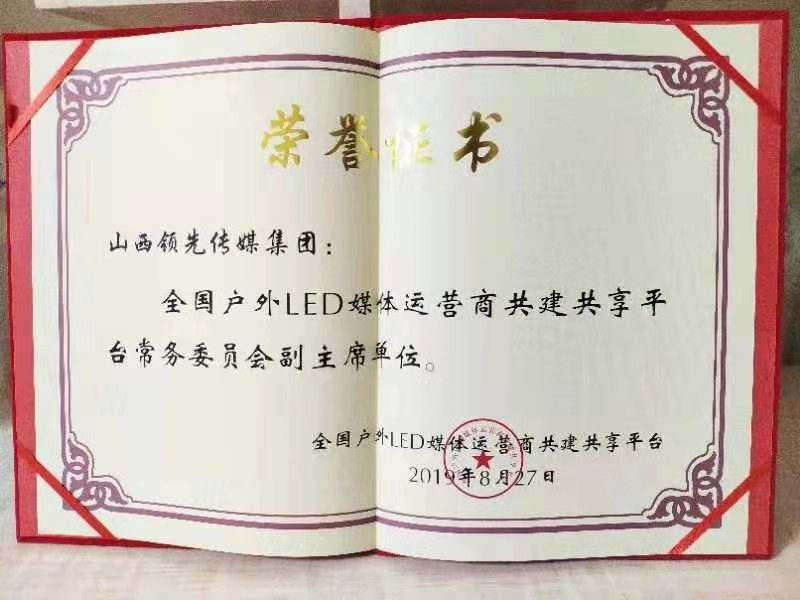 荣誉证书
山西领先传媒集团：
全国户外LED媒体运营商共建共享平
台常务委员会副主席单位。
全国户外LED媒体运营商共建共享平台
2019年8月27日